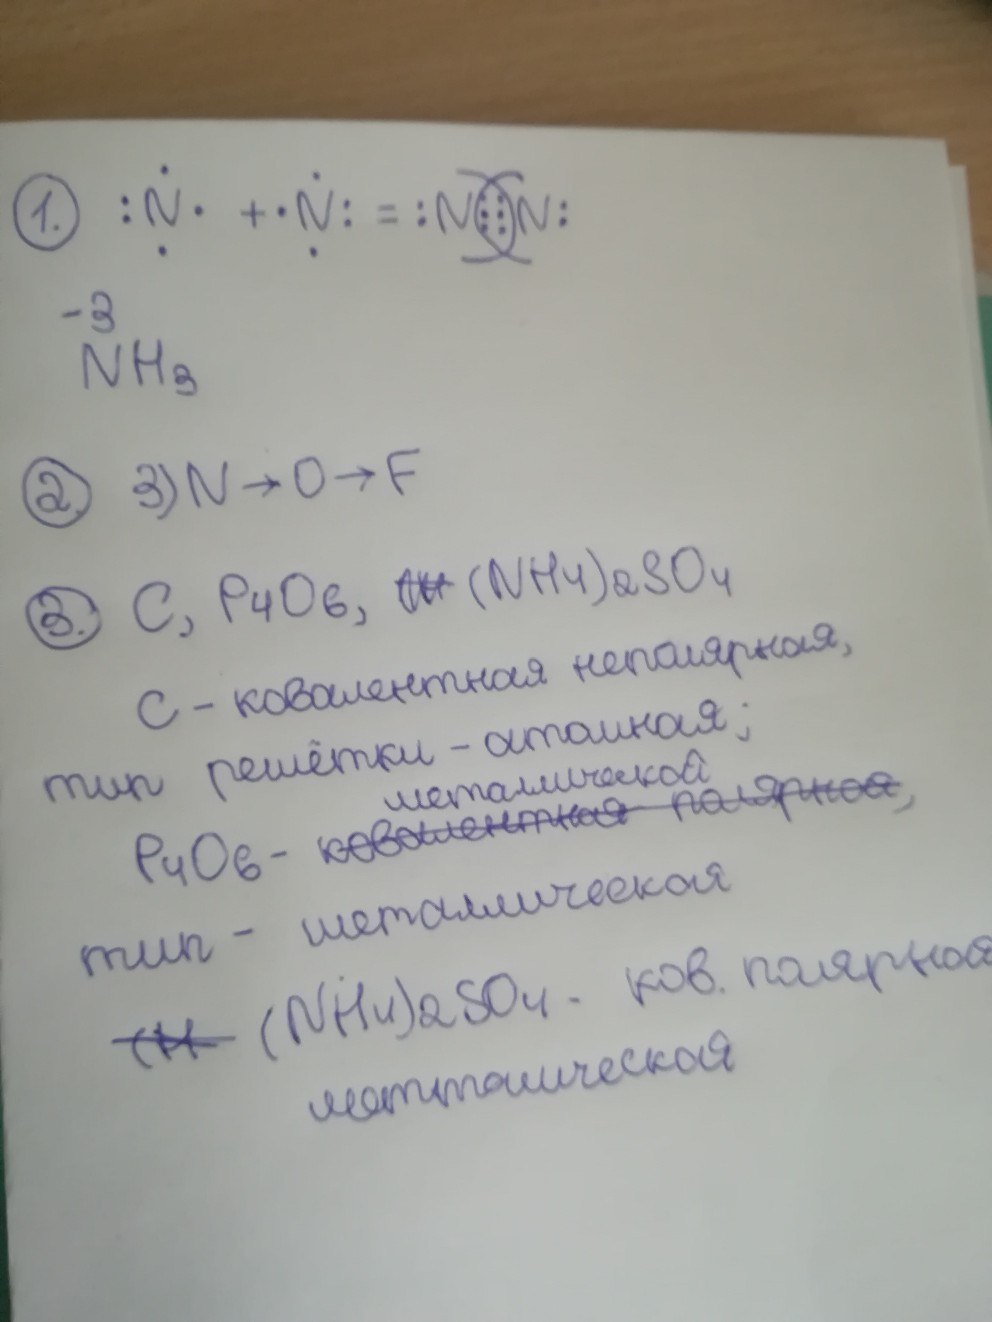 1. :N· + ·N: = :N⋮⋮N:
-3
NH3
2. 3) N → O → F
3. C, P4O6, (NH4)2SO4
C - ковалентная неполярная,
тип решётки - атомная;
металлической
P4O6 - ковалентная полярная,
тип - металлическая
(NH4)2SO4 - ков. полярная
метталическая